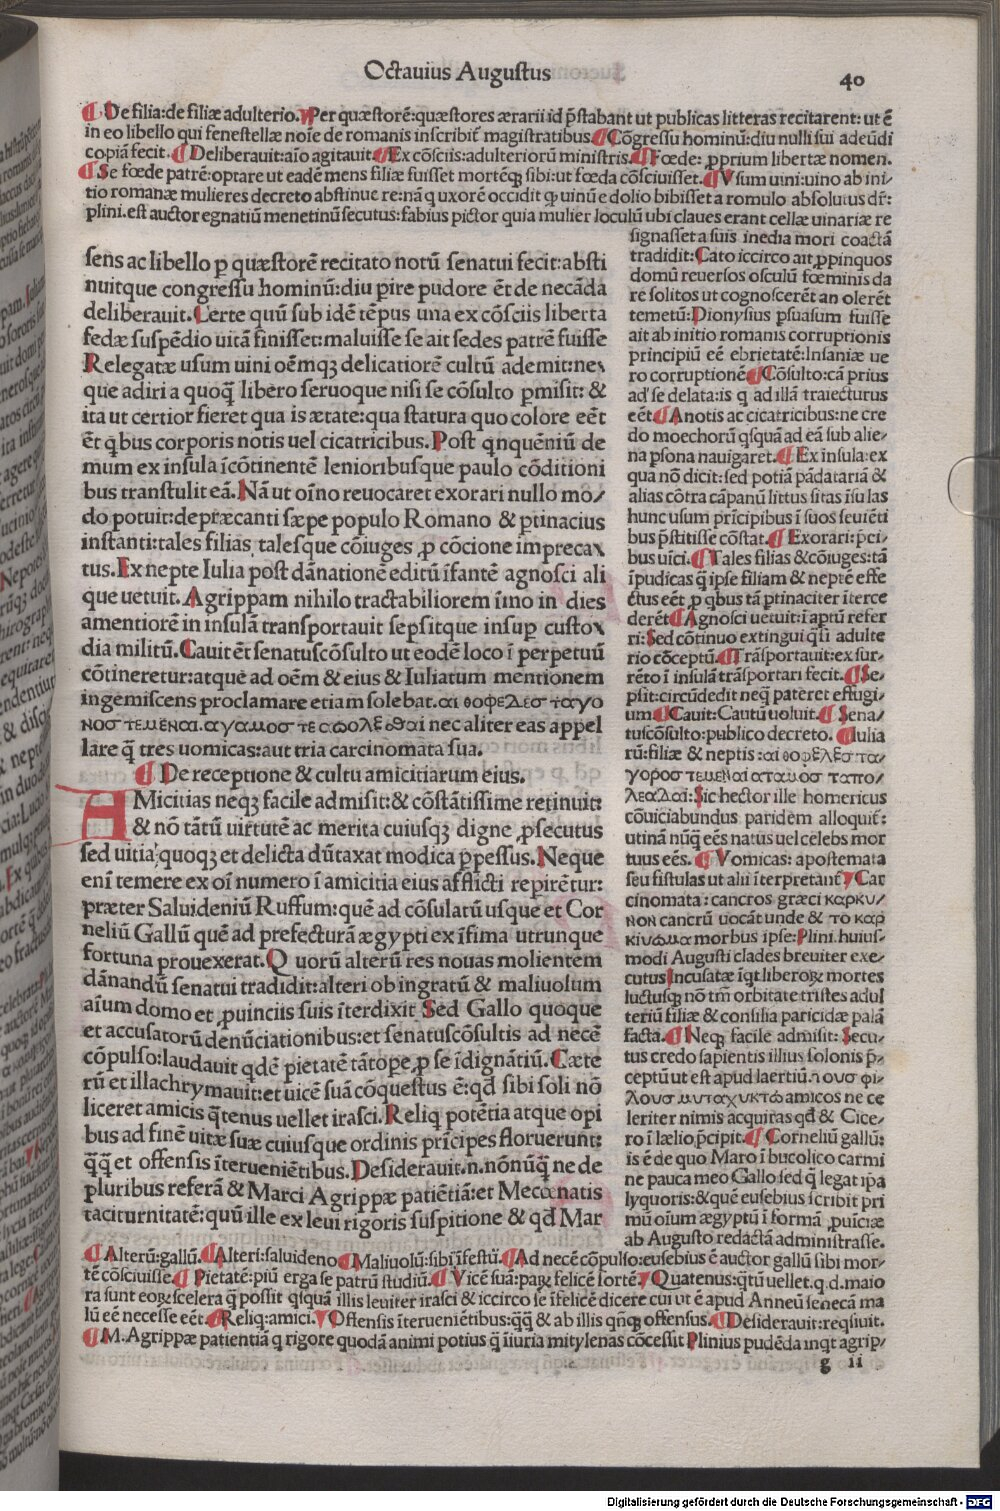 Octauius Augustus
40
De filia: de filiæ adulterio. Per quæstorē: quæstores ærarii id p̄stabant ut publicas litteras recitarent: ut ē
in eo libello qui fenestellæ noīe de romanis inscribit̄ magistratibus. Cōgressu hominū: diu nulli sui adeūdi
copiā fecit. Deliberauit: aīo agitauit. Ex cōsciis: adulteriorū ministris. Fœde: ꝓprium libertæ nomen.
Se fœde patrē: optare ut eadē mens filiæ fuisset mortēq; sibi: ut fœda cōsciuisset. Vsum uini: uino ab ini/
tio romanæ mulieres decreto abstinue re: nā q uxorē occidit ꝙ uinū e dolio bibisset a romulo absolutus dr̄:
plini. est auctor egnatiū menetinū secutus: fabius pictor quia mulier loculū ubi claues erant cellæ uinariæ re
sens ac libello ꝑ quæstorē recitato notū senatui fecit: absti
nuitque congressu hominū: diu p̄ire pudore ēt de necāda
deliberauit. Certe quū sub idē tēpus una ex cōsciis liberta
fedæ suspēdio uitā finisset: maluisse se ait fedes patrē fuisse
Relegatæ usum uini oēmq; delicatiorē cultū ademit: ne
que adiri a quoq̄ libero seruoque nisi se cōsulto ꝑmisit: &
ita ut certior fieret qua is ætate: qua statura quo colore eēt
ēt qbus corporis notis uel cicatricibus. Post qnquēniū de
mum ex insula īcōtinentē lenioribusque paulo cōditioni
bus transtulit eā. Nā ut oīno reuocaret exorari nullo mo/
do potuit: depræcanti sæpe populo Romano & ꝑtinacius
instanti: tales filias talesque cōiuges ꝓ cōcione impreca
tus. Ex nepte Iulia post dānationē editū īfantē agnosci ali
que uetuit. Agrippam nihilo tractabiliorem īmo in dies
amentiorē in insulā transportauit sepsitque insuꝑ custo
dia militū. Cauit ēt senatuscōsulto ut eodē loco ī perpetuū
cōtineretur: atque ad oēm & eius & Iuliatum mentionem
ingemiscens proclamare etiam solebat. αι θοφελεσ ταγο
νοσ τεμεναι. αγαμοσ τε σωολεθαι nec aliter eas appel
lare q̄ tres uomicas: aut tria carcinomata sua.
De receptione & cultu amicitiarum eius.
AMicitias neq; facile admisit: & cōstātissime retinuit:
& nō tātū uirtutē ac merita cuiusq; digne ꝓsecutus
sed uitia quoq; et delicta dūtaxat modica ꝑpessus. Neque
enī temere ex oī numero ī amicitia eius afflicti repirētur:
præter Saluideniū Ruffum: quē ad cōsulatū usque et Cor
neliū Gallū quē ad prefecturā ægypti ex īfima utrunque
fortuna prouexerat. Quorū alterū res nouas molientem
dānandū senatui tradidit: alteri ob ingratū & maliuolum
aīum domo et ꝓuinciis suis īterdixit Sed Gallo quoque
et accusatorū denūciationibus: et senatuscōsultis ad necē
cōpulso: laudauit qdē pietatē tātope ꝓ se īdignātiū. Cæte
rū et illachrymauit: et uicē suā cōquestus ē: qđ sibi soli nō
liceret amicis q̄tenus uellet irasci. Reliq potētia atque opi
bus ad finē uitæ suæ cuiusque ordinis prīcipes floruerunt:
q̄q̄ et offensis īterueniētibus. Desiderauit. n. nōnūq̄ ne de
pluribus referā & Marci Agrippæ patiētiā: et Mecœnatis
taciturnitatē: quū ille ex leui rigoris suspitione & qđ Mar
signasset a suis inedia mori coactā
tradidit: Cato iccirco ait ꝓpinquos
domū reuersos osculū fœminis da
re solitos ut cognoscerēt an olerēt
temetū: Dionysius ꝑsuasum fuisse
ait ab initio romanis corruptionis
principiū eē ebrietatē: Insaniæ ue
ro corruptionē Cōsulto: cā prius
ad se delata: is q ad illā traiecturus
eēt Anotis ac cicatricibus: ne cre
do moechorū qsquā ad eā sub alie/
na ꝑsona nauigaret. Ex insula: ex
qua nō dicit: sed potiā pādatariā &
alias cōtra cāpanū littus sitas īsulas
hunc usum prīcipibus ī suos seuiēti
bus p̄stitisse cōstat. Exorari: p̄ci/
bus uīci. Tales filias & cōiuges: tā
īpudicas q̄ ipse filiam & neptē effe
ctus eēt ꝓ qbus tā ꝑtinaciter īterce
derēt Agnosci uetuit: ī aptū refer
ri: Sed cōtinuo extingui qsi adulte
rio cōceptū. Trāsportauit: ex sur/
rēto ī insulā trāsportari fecit. Se/
psit: circūdedit neq̄ pateret effugi/
um Cauit: Cautū uoluit. Sena/
tuscōsulto: publico decreto. Iulia
rū: filiæ & neptis: αι θοφελεσ τα/
γοροσ τεμεναι αταμοσ ταπο/
λεαδαι: Sic hector ille homericus
cōuiciabundus paridem alloquit̄:
utinā nūq̄ eēs natus uel celebs mor
tuus eēs. Vomicas: apostemata
seu fistulas ut alii īterpretant̄ Car
cinomata: cancros græci καρκυ/
νον cancrū uocāt unde & το καρ
κινωμα morbus ipse: Plini. huius/
modi Augusti clades breuiter exe/
cutus Incusatæ īqt liberoꝝ mortes
luctusq; nō tm̄ orbitate tristes adul
teriū filiæ & consilia paricidæ palā
facta. Neq; facile admisit: Secu/
tus credo sapientis illius solonis p̄/
ceptū ut est apud laertiū. νουσ φι/
λουσ μυταχυκτω amicos ne ce
leriter nimis acquiras qđ & Cice/
ro ī lælio p̄cipit. Corneliū gallū:
is ē de quo Maro ī bucolico carmi
ne pauca meo Gallo sed q̄ legat ipa
lyquoris: & quē eusebius scribit pri
mū oīum ægyptū ī formā ꝓuīciæ
ab Augusto redactā administrasse.
Alterū: gallū. Alteri: saluideno Maliuolū: sibi īfestū. Ad necē cōpulso: eusebius ē auctor gallū sibi mor/
tē cōsciuisse. Pietatē: piū erga se patrū studiū. Vicē suā: paꝝ felicē sortē Quatenus: q̄tū uellet. q. d. maio
ra sunt eoꝝ scelera q̄ possit qsquā illis leuiter irasci & iccirco se īfelicē dicere cui ut ē apud Anneū senecā ma
lū eē necesse eēt. Reliq: amici. Offensis īteruenïētibus: q̄q̄ & ab illis qñq; offensus. Desiderauit: reqsiuit.
M. Agrippæ patientiā q rigore quodā animi potius q̄ īiuria mitylenas cōcessit Plinius pudēda inqt agrip/
g ii
Digitalisierung gefördert durch die Deutsche Forschungsgemeinschaft - DFG